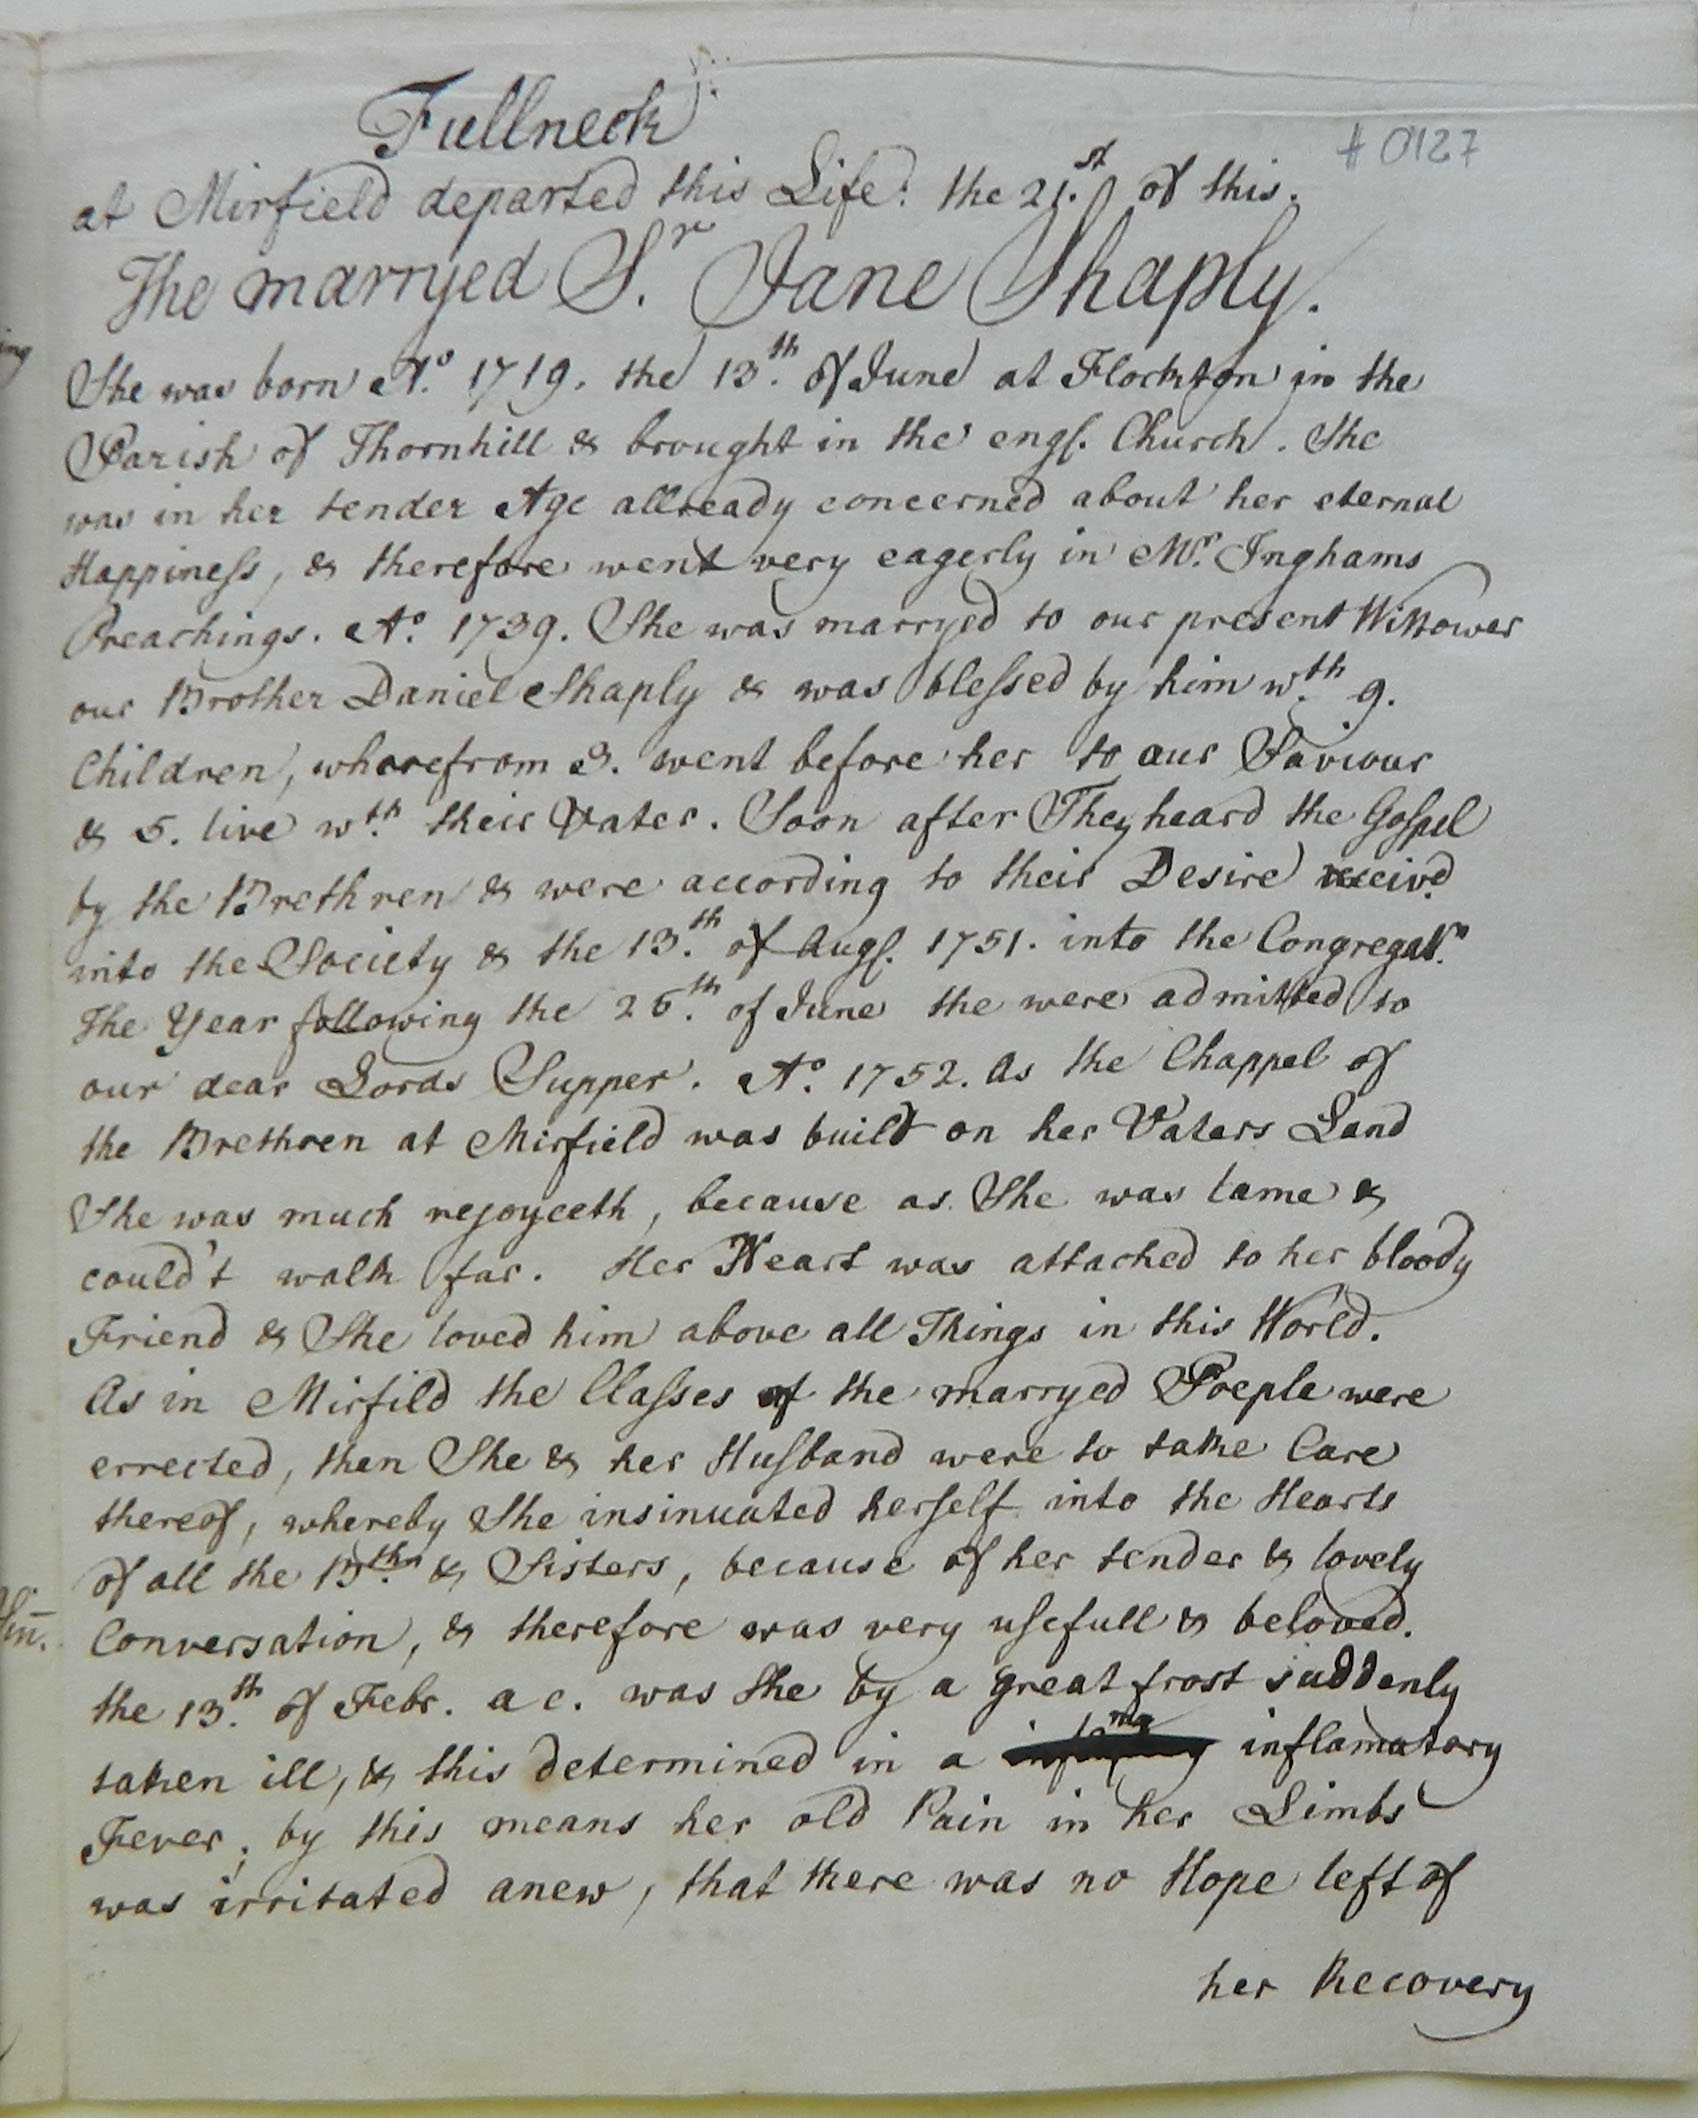 Fullneck
# 0127
at Mirfield departed this Life. the 21.st of this.
The marryed S.r Jane Shaply.
She was born Ao. 1719. the 13.th of June at Flockton in the
Parish of Thornhill & brought in the engl. Church. She
was in her tender Age allready concerned about her eternal
Happiness, & therefore went very eagerly in Mr. Inghams
Preachings. Ao. 1739. She was marryed to our present Wittower
our Brother Daniel Shaply & was blessed by him w.th 9.
Children, wherefrom 3. went before her to our Saviour
& 5. live w.th their Vater. Soon after They heard the Gospel
by the Brethren & were according to their Desire receiv'd
into the Society & the 13.th of Augs. 1751. into the Congregat.n
The Year following the 26.th of June the were admitted to
our dear Lords Supper. Ao. 1752. As the Chappel of
the Brethren at Mirfield was built on her Vaters Land
She was much rejoyceth, because as She was lame &
could't walk far. Her Heart was attached to her bloody
Friend & She loved him above all Things in this World.
As in Mirfild the Classes of the marryed Poeple were
errected, then She & her Husband were to take Care
thereof, whereby She insinuated herself into the Hearts
of all the B.thn & Sisters, because of her tender & lovely
Conversation, & therefore was very usefull & beloved.
the 13.th of Febr. a c. was She by a great frost suddenly
taken ill, & this determined in a inflamatory
Fever; by this means her old Pain in her Limbs
was irritated anew, that there was no Hope left of
her Recovery